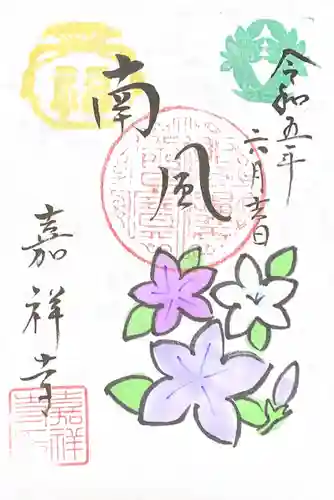 令和五年
六月吉日
南風
嘉祥寺
嘉祥